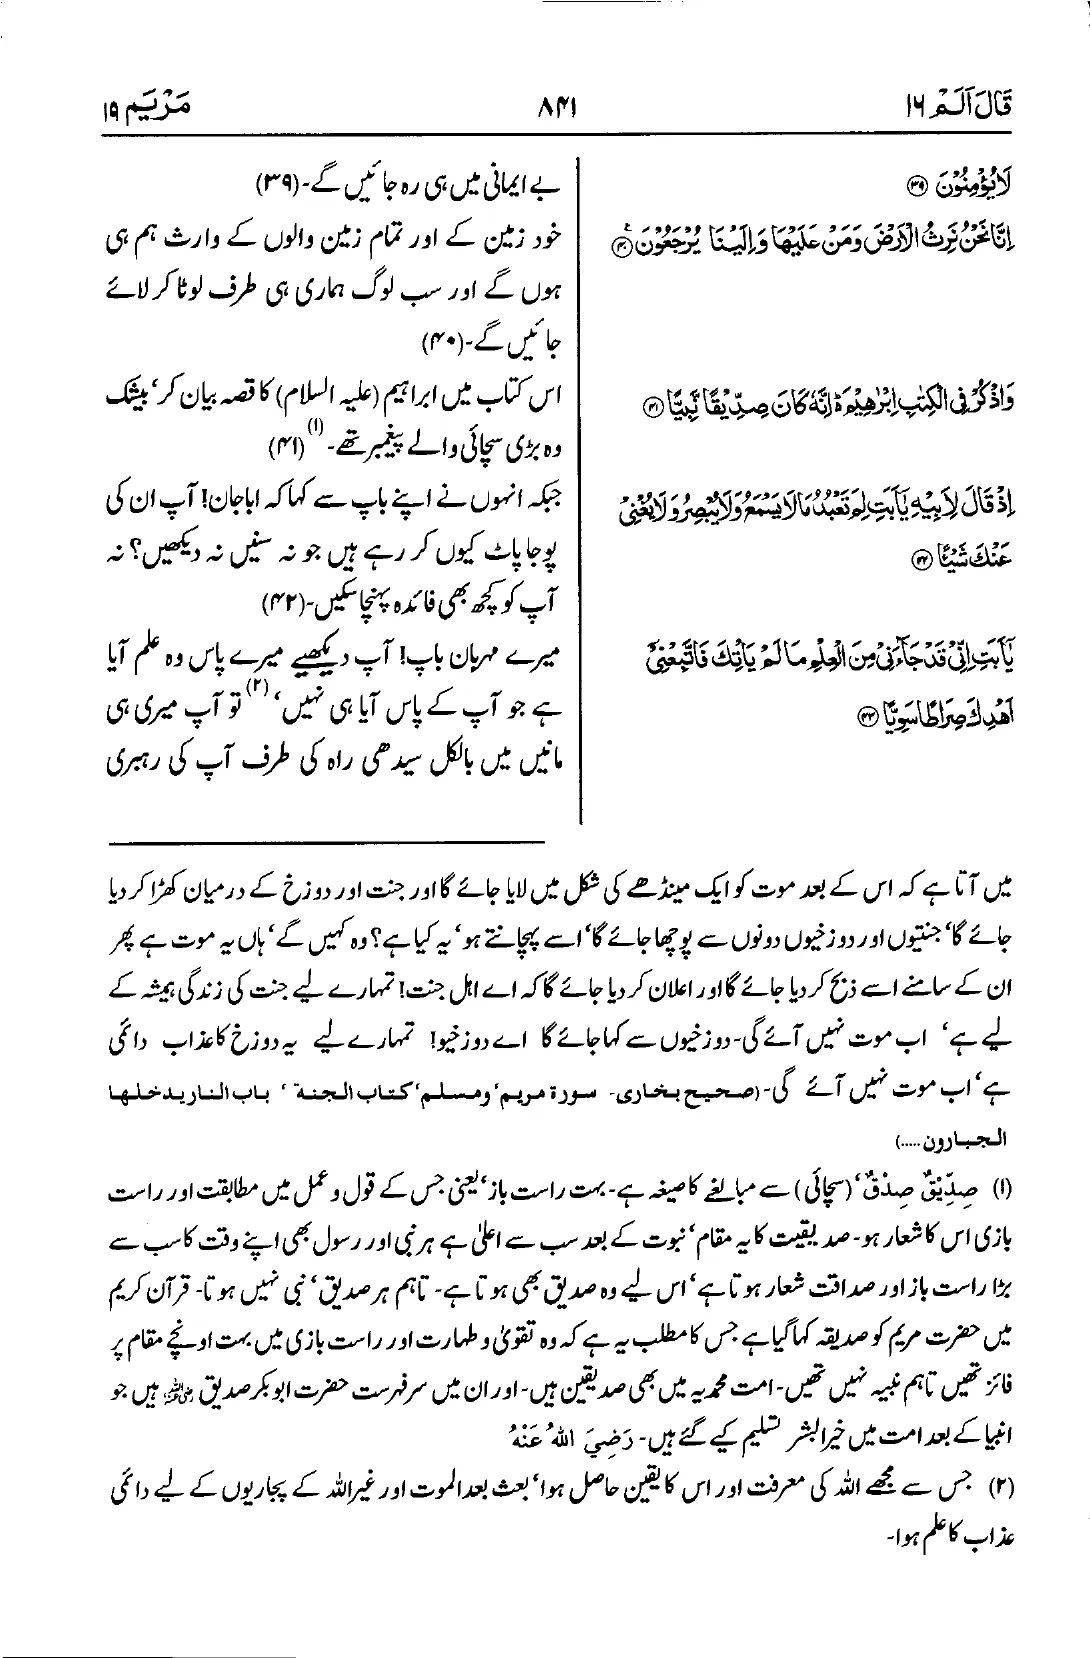 قَالَ اَلَمْ ۱۶
۸۴۱
مَرْيَم ۱۹
لَا يُؤْمِنُوْنَ ۝۳۹
اِنَّا نَحْنُ نَرِثُ الْاَرْضَ وَمَنْ عَلَيْهَا وَاِلَيْنَا يُرْجَعُوْنَ ۝۴۰
وَاذْكُرْ فِي الْكِتٰبِ اِبْرٰهِيْمَ ەۭ اِنَّهٗ كَانَ صِدِّيْقًا نَّبِيًّا ۝۴۱
اِذْ قَالَ لِاَبِيْهِ يٰۤاَبَتِ لِمَ تَعْبُدُ مَا لَا يَسْمَعُ وَلَا يُبْصِرُ وَلَا يُغْنِيْ
عَنْكَ شَيْـًٔا ۝۴۲
يٰۤاَبَتِ اِنِّيْ قَدْ جَآءَنِيْ مِنَ الْعِلْمِ مَا لَمْ يَاْتِكَ فَاتَّبِعْنِيْٓ
اَهْدِكَ صِرَاطًا سَوِيًّا ۝۴۳
بے ایمانی میں ہی رہ جائیں گے۔(۳۹)
خود زمین کے اور تمام زمین والوں کے وارث ہم ہی
ہوں گے اور سب لوگ ہماری ہی طرف لوٹا کر لائے
جائیں گے۔(۴۰)
اس کتاب میں ابراہیم (علیہ السلام) کا قصہ بیان کر، بیشک
وہ بڑی سچائی والے پیغمبر تھے۔(۱) (۴۱)
جبکہ انہوں نے اپنے باپ سے کہا کہ ابا جان! آپ ان کی
پوجا پاٹ کیوں کر رہے ہیں جو نہ سنیں نہ دیکھیں؟ نہ
آپ کو کچھ بھی فائدہ پہنچا سکیں۔(۴۲)
میرے مہربان باپ! آپ دیکھیے میرے پاس وہ علم آیا
ہے جو آپ کے پاس آیا ہی نہیں،(۲) تو آپ میری ہی
مانیں میں بالکل سیدھی راہ کی طرف آپ کی رہبری
میں آتا ہے کہ اس کے بعد موت کو ایک مینڈھے کی شکل میں لایا جائے گا اور جنت اور دوزخ کے درمیان کھڑا کر دیا
جائے گا، جنتیوں اور دوزخیوں دونوں سے پوچھا جائے گا، اسے پہچانتے ہو، یہ کیا ہے؟ وہ کہیں گے، ہاں یہ موت ہے پھر
ان کے سامنے اسے ذبح کر دیا جائے گا اور اعلان کر دیا جائے گا کہ اے اہل جنت! تمہارے لیے جنت کی زندگی ہمیشہ کے
لیے ہے، اب موت نہیں آئے گی۔ دوزخیوں سے کہا جائے گا اے دوزخیو! تمہارے لیے یہ دوزخ کا عذاب دائمی
ہے، اب موت نہیں آئے گی۔ (صحیح بخاری۔ سورۃ مریم، ومسلم، کتاب الجنة ، باب النار یدخلها
الجبارون.....)
(۱) صِدِّیْقٌ صِدْقٌ، (سچائی) سے مبالغے کا صیغہ ہے۔ بہت راست باز، یعنی جس کے قول و عمل میں مطابقت اور راست
بازی اس کا شعار ہو۔ صدیقیت کا یہ مقام، نبوت کے بعد سب سے اعلیٰ ہے ہر نبی اور رسول بھی اپنے وقت کا سب سے
بڑا راست باز اور صداقت شعار ہوتا ہے، اس لیے وہ صدیق بھی ہوتا ہے۔ تاہم ہر صدیق، نبی نہیں ہوتا۔ قرآن کریم
میں حضرت مریم کو صدیقہ کہا گیا ہے جس کا مطلب یہ ہے کہ وہ تقویٰ و طہارت اور راست بازی میں بہت اونچے مقام پر
فائز تھیں تاہم نبیہ نہیں تھیں۔ امت محمدیہ میں بھی صدیقین ہیں۔ اور ان میں سرفہرست حضرت ابوبکر صدیق رضی اللہ عنہ ہیں جو
انبیا کے بعد امت میں خیر البشر تسلیم کیے گئے ہیں۔ رَضِيَ اللهُ عَنْهُ
(۲) جس سے مجھے اللہ کی معرفت اور اس کا یقین حاصل ہوا، بعث بعد الموت اور غیر اللہ کے پجاریوں کے لیے دائمی
عذاب کا علم ہوا۔